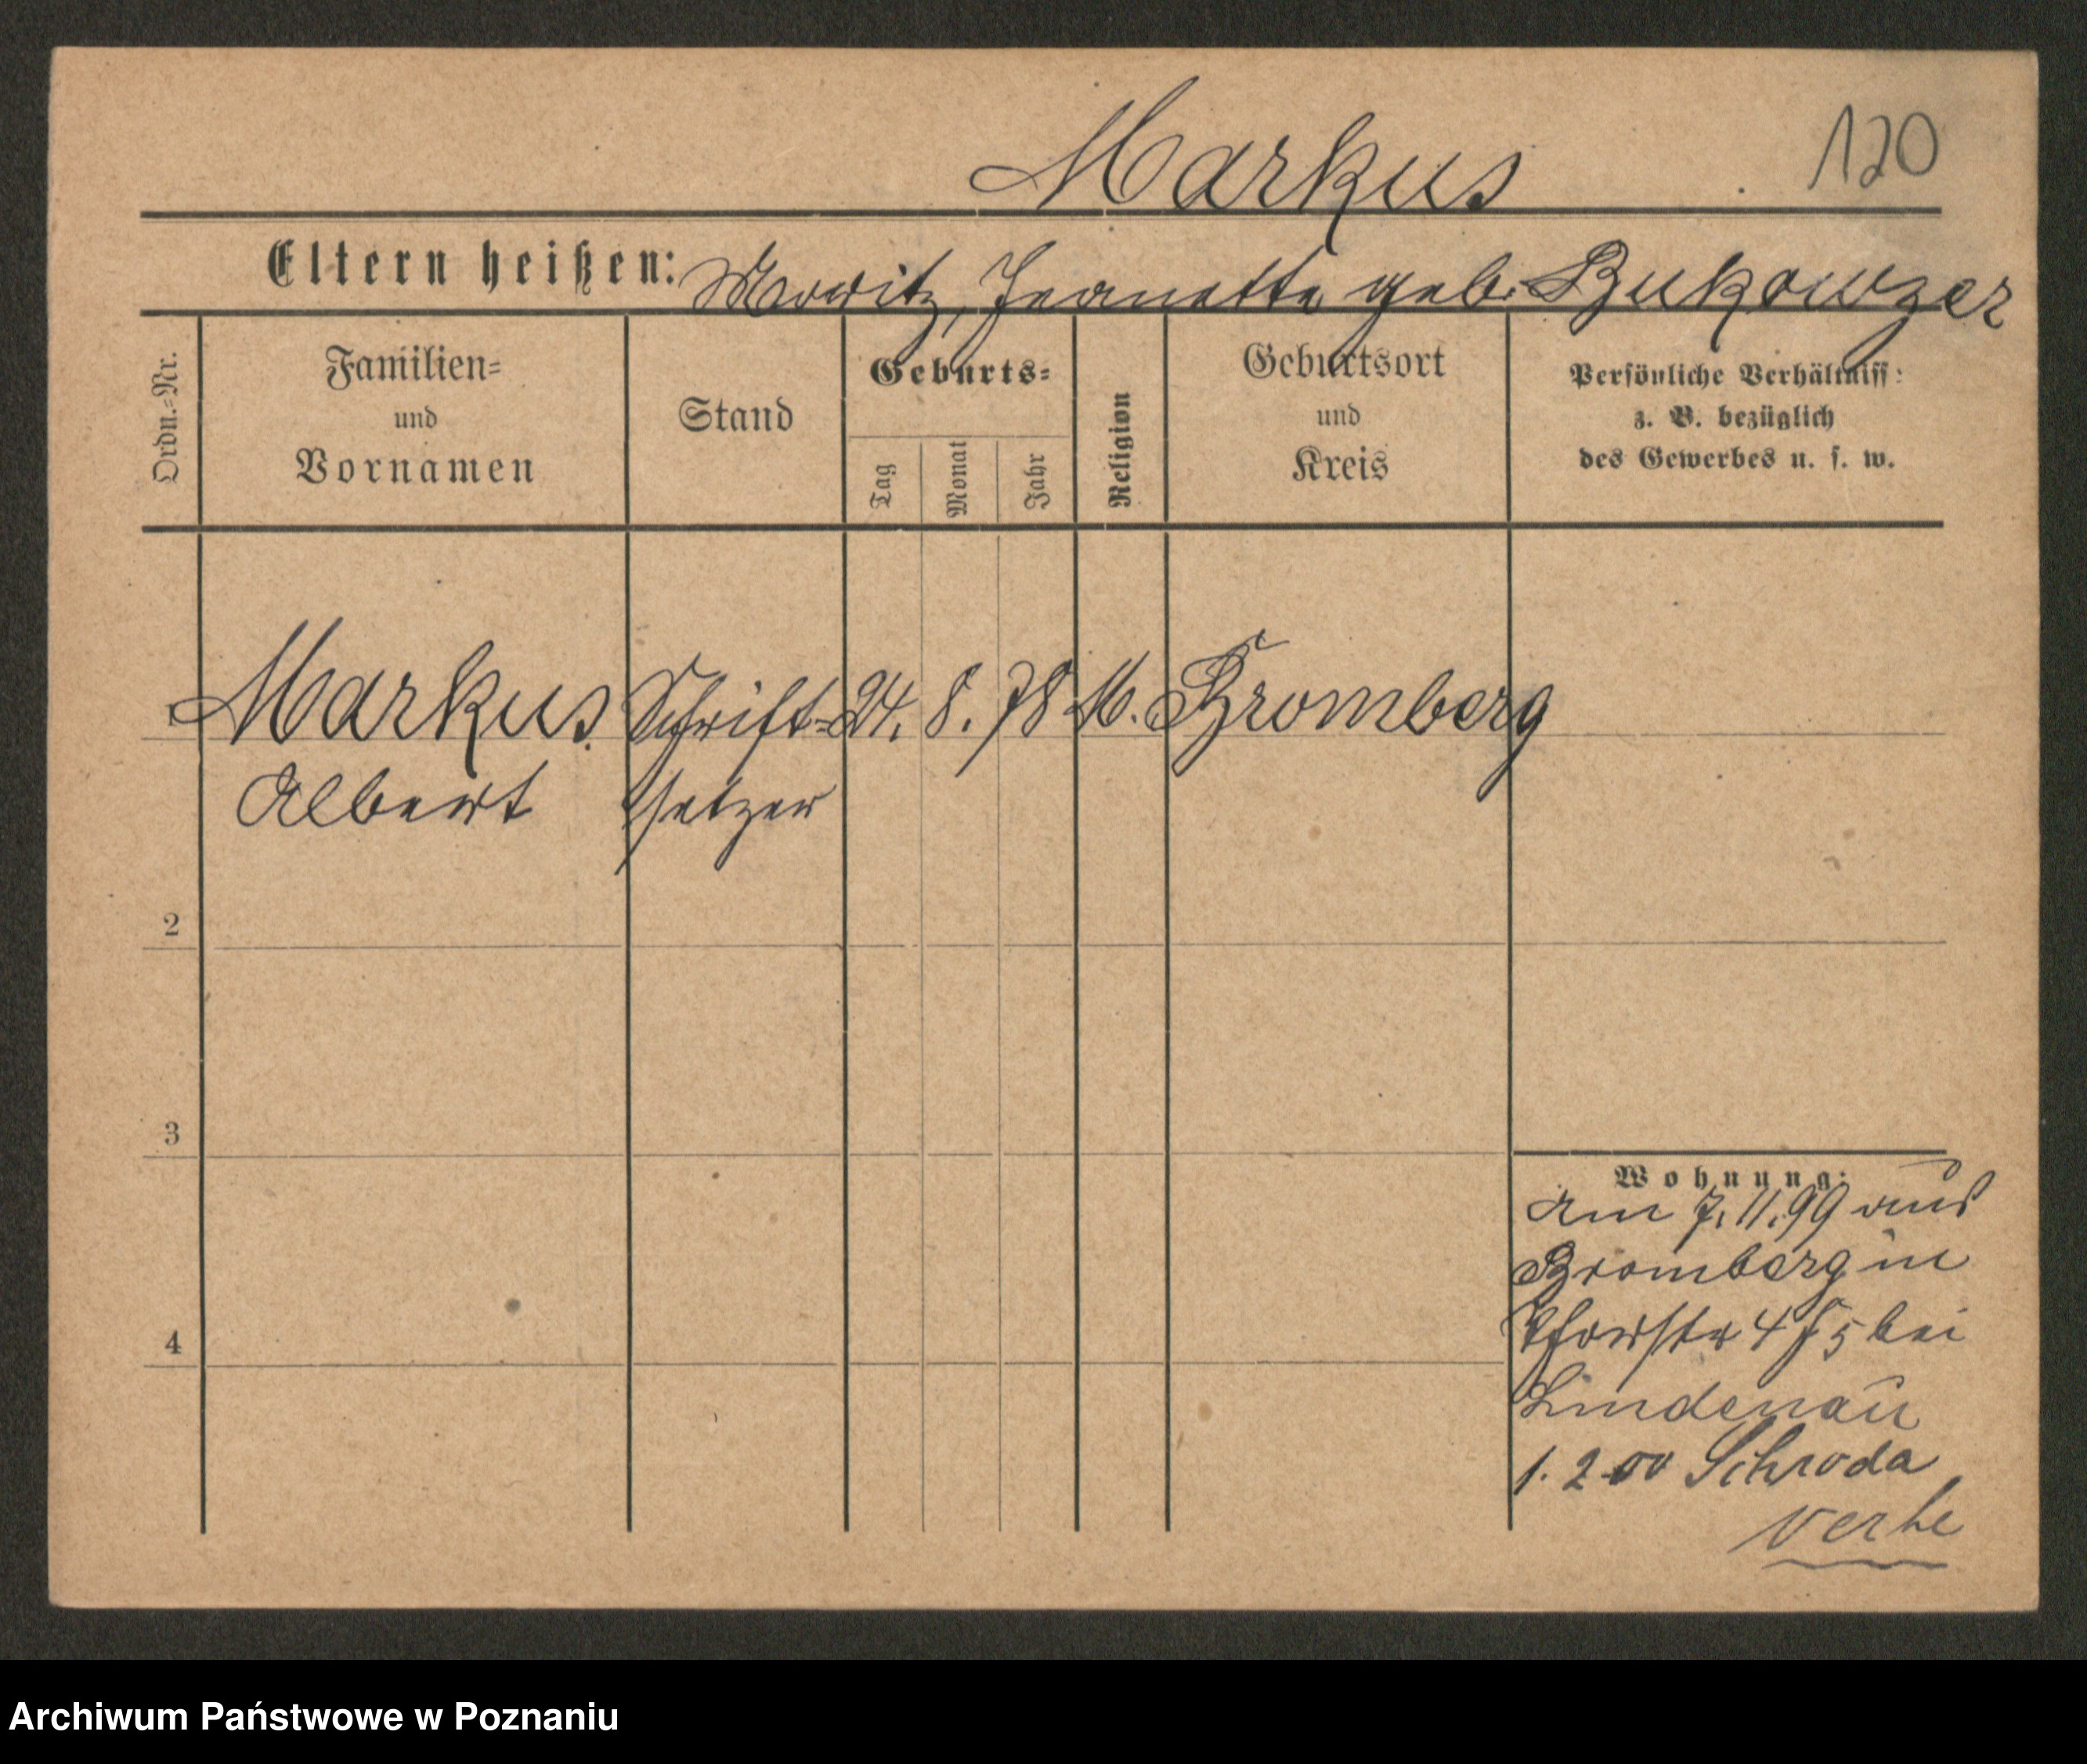 Markus
120
Eltern heißen: Moritz, Jeanette geb. Bukowzer
Ordn.-Nr.
Familien-
und
Vornamen
Stand
Geburts-
Tag
Monat
Jahr
Religion
Geburtsort
und
Kreis
Persönliche Verhältniss:
z. B. bezüglich
des Gewerbes u. s. w.
1 Markus Schrift- 24. 8. 78 M. Bromberg
Albert setzer
2
3
4
Wohnung:
am 7.11.99 aus
Bromberg in
4 5 bei
Lindenau
1. 2 00 Schroda
Archiwum Państwowe w Poznaniu